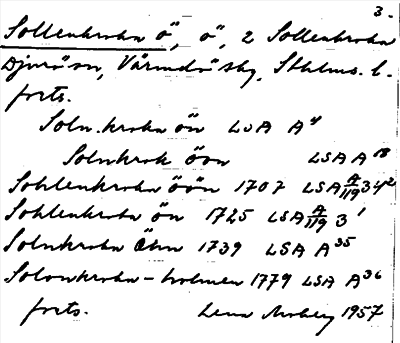 3.
Sollenkroka ö, ö, 2 Sollenkroka
Djurö sn, Värmdö skg, Sthlms l.
forts.
Soln.kroka ön LSA A4
Solnkrok öön LSA A18
Sohlenkroka öön 1707 LSA A/119 34 2
Sohlenkroka ön 1725 LSA A/119 3 1
Solnkroka Öhn 1739 LSA A35
Solonkroka-holmen 1779 LSA A36
forts. Lena Moberg 1957